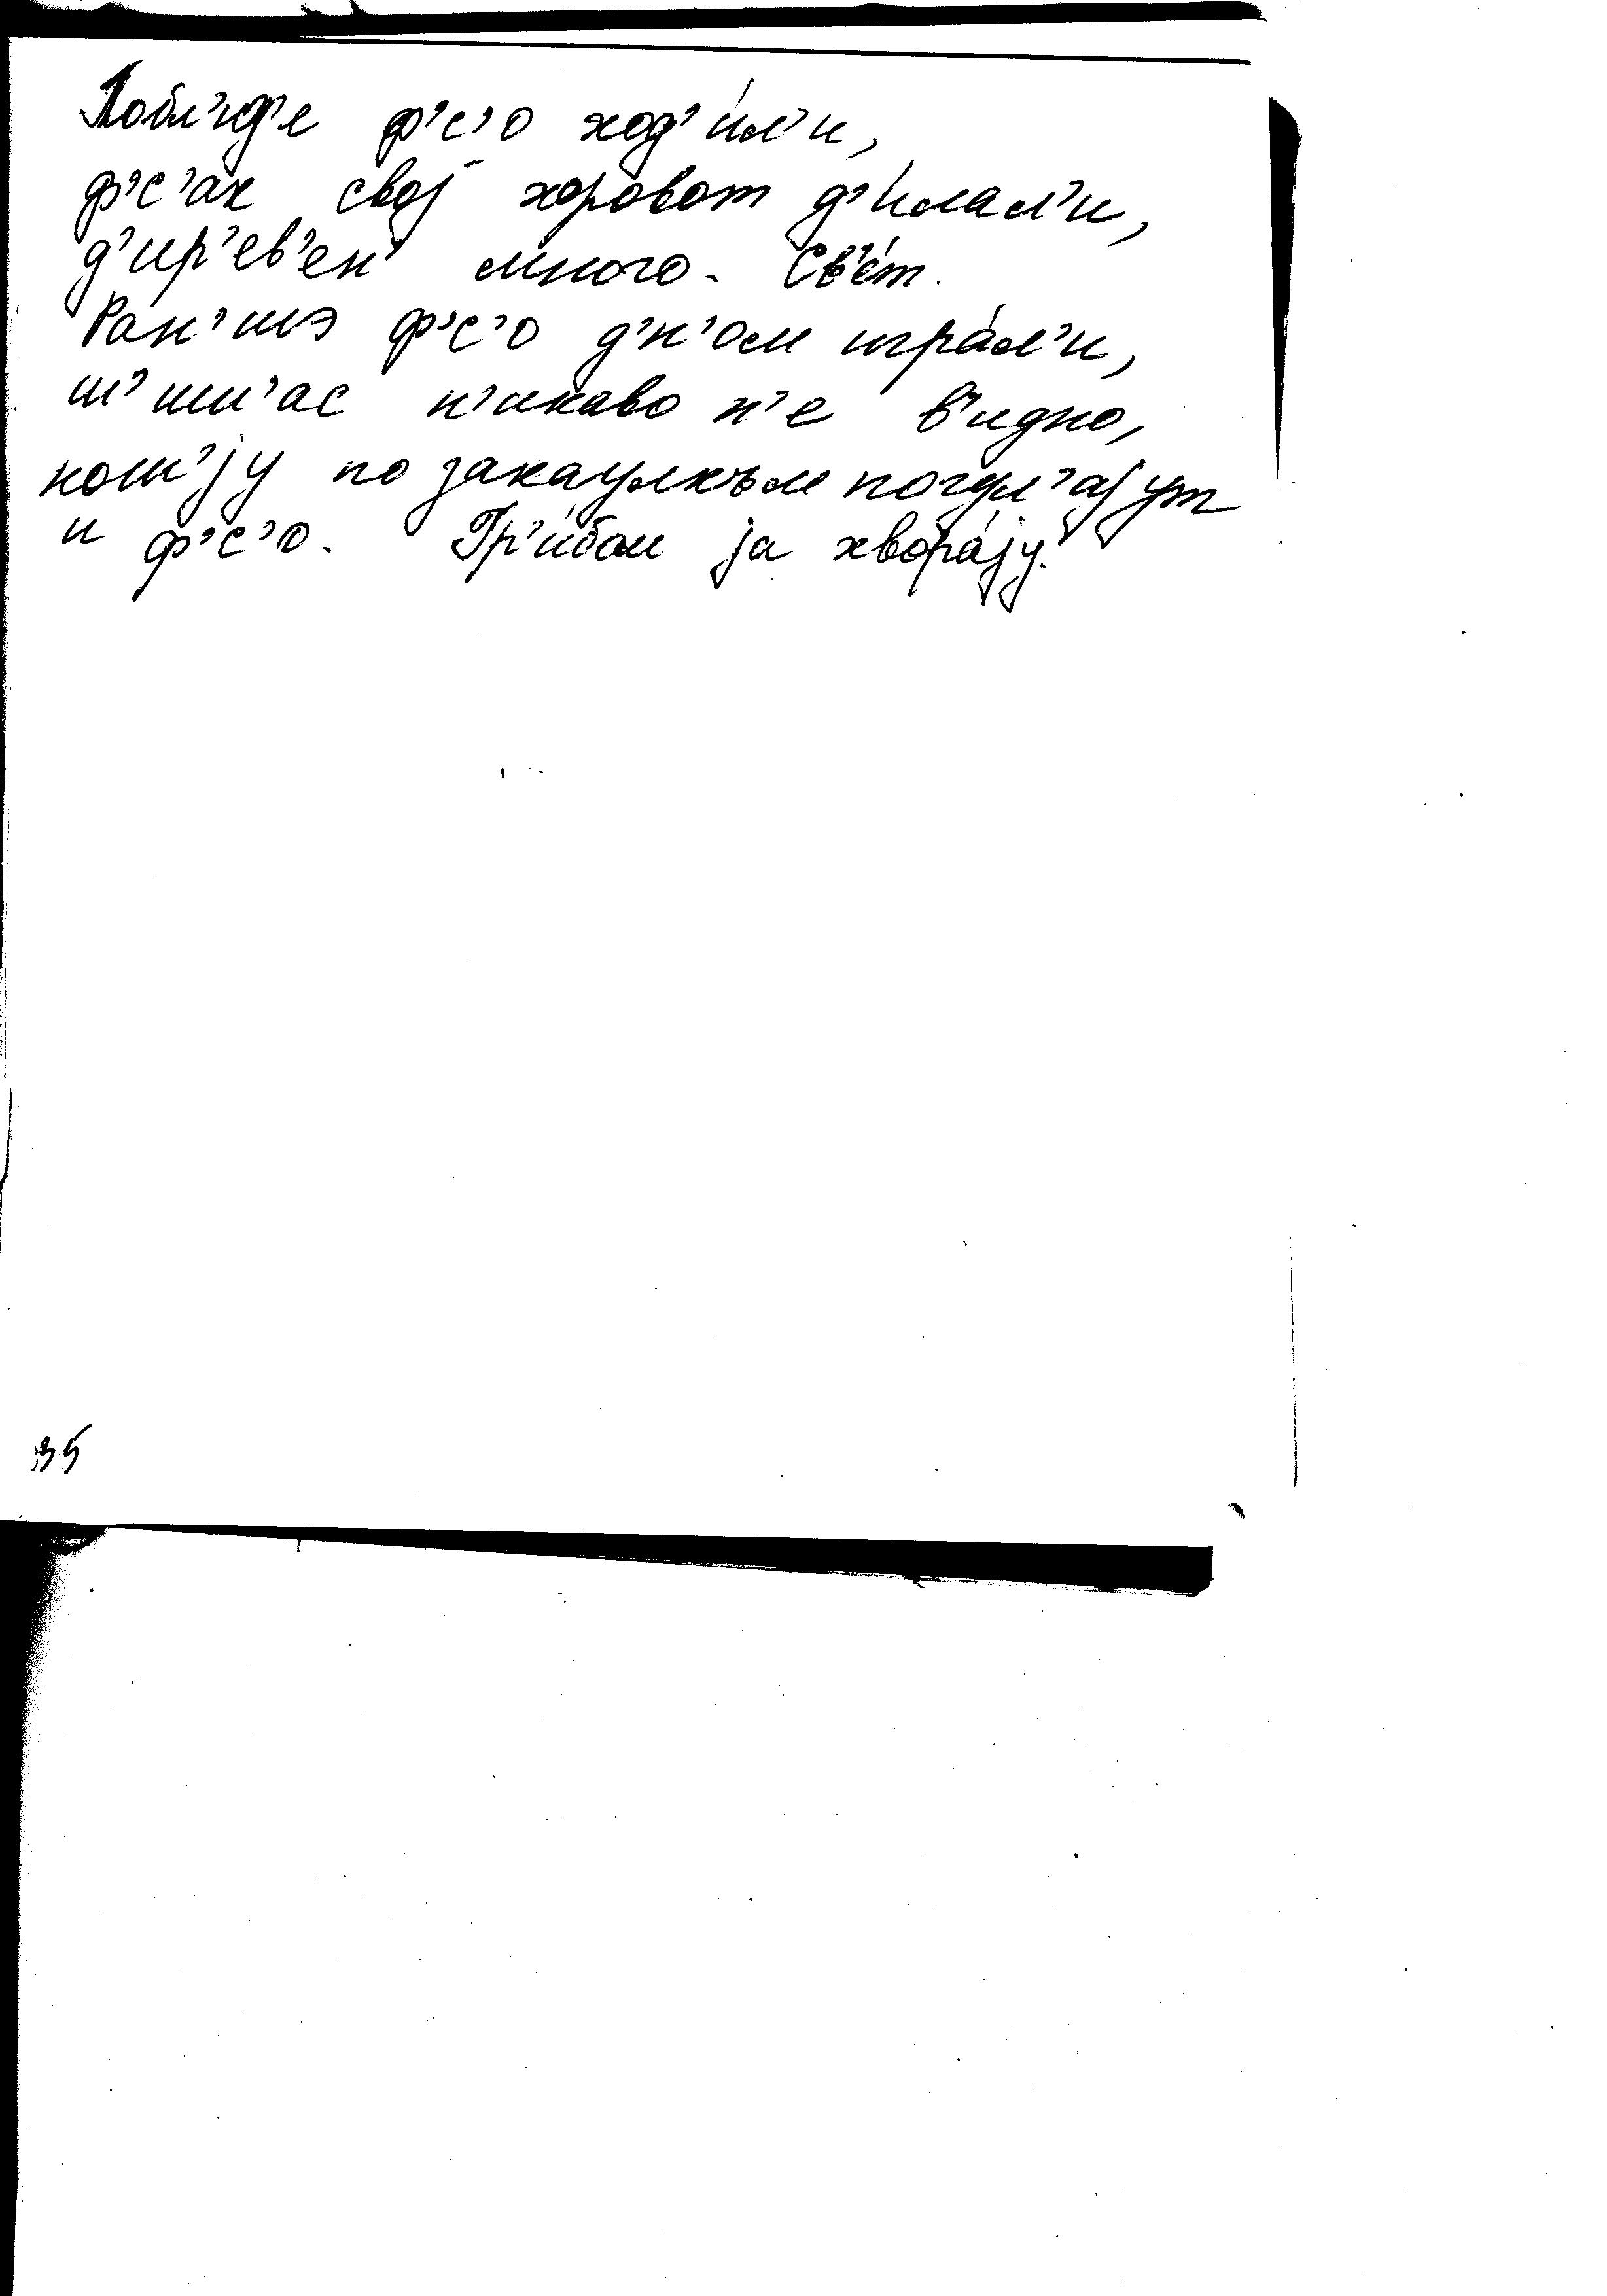 ф’с’о ход’и́л’и,
ф’с’ак свој хоровот д’и́лал’и,
д’ир’ев’ен’ много. Св’е́т.
Ран’шэ ф’с’о д’н’ом игра́л’и,
н’икаво н’е в’идно,
ноч’ју по закаулкъм погул’ајут
и ф’с’о. Гр’и́бом ја хвора́ју.
35